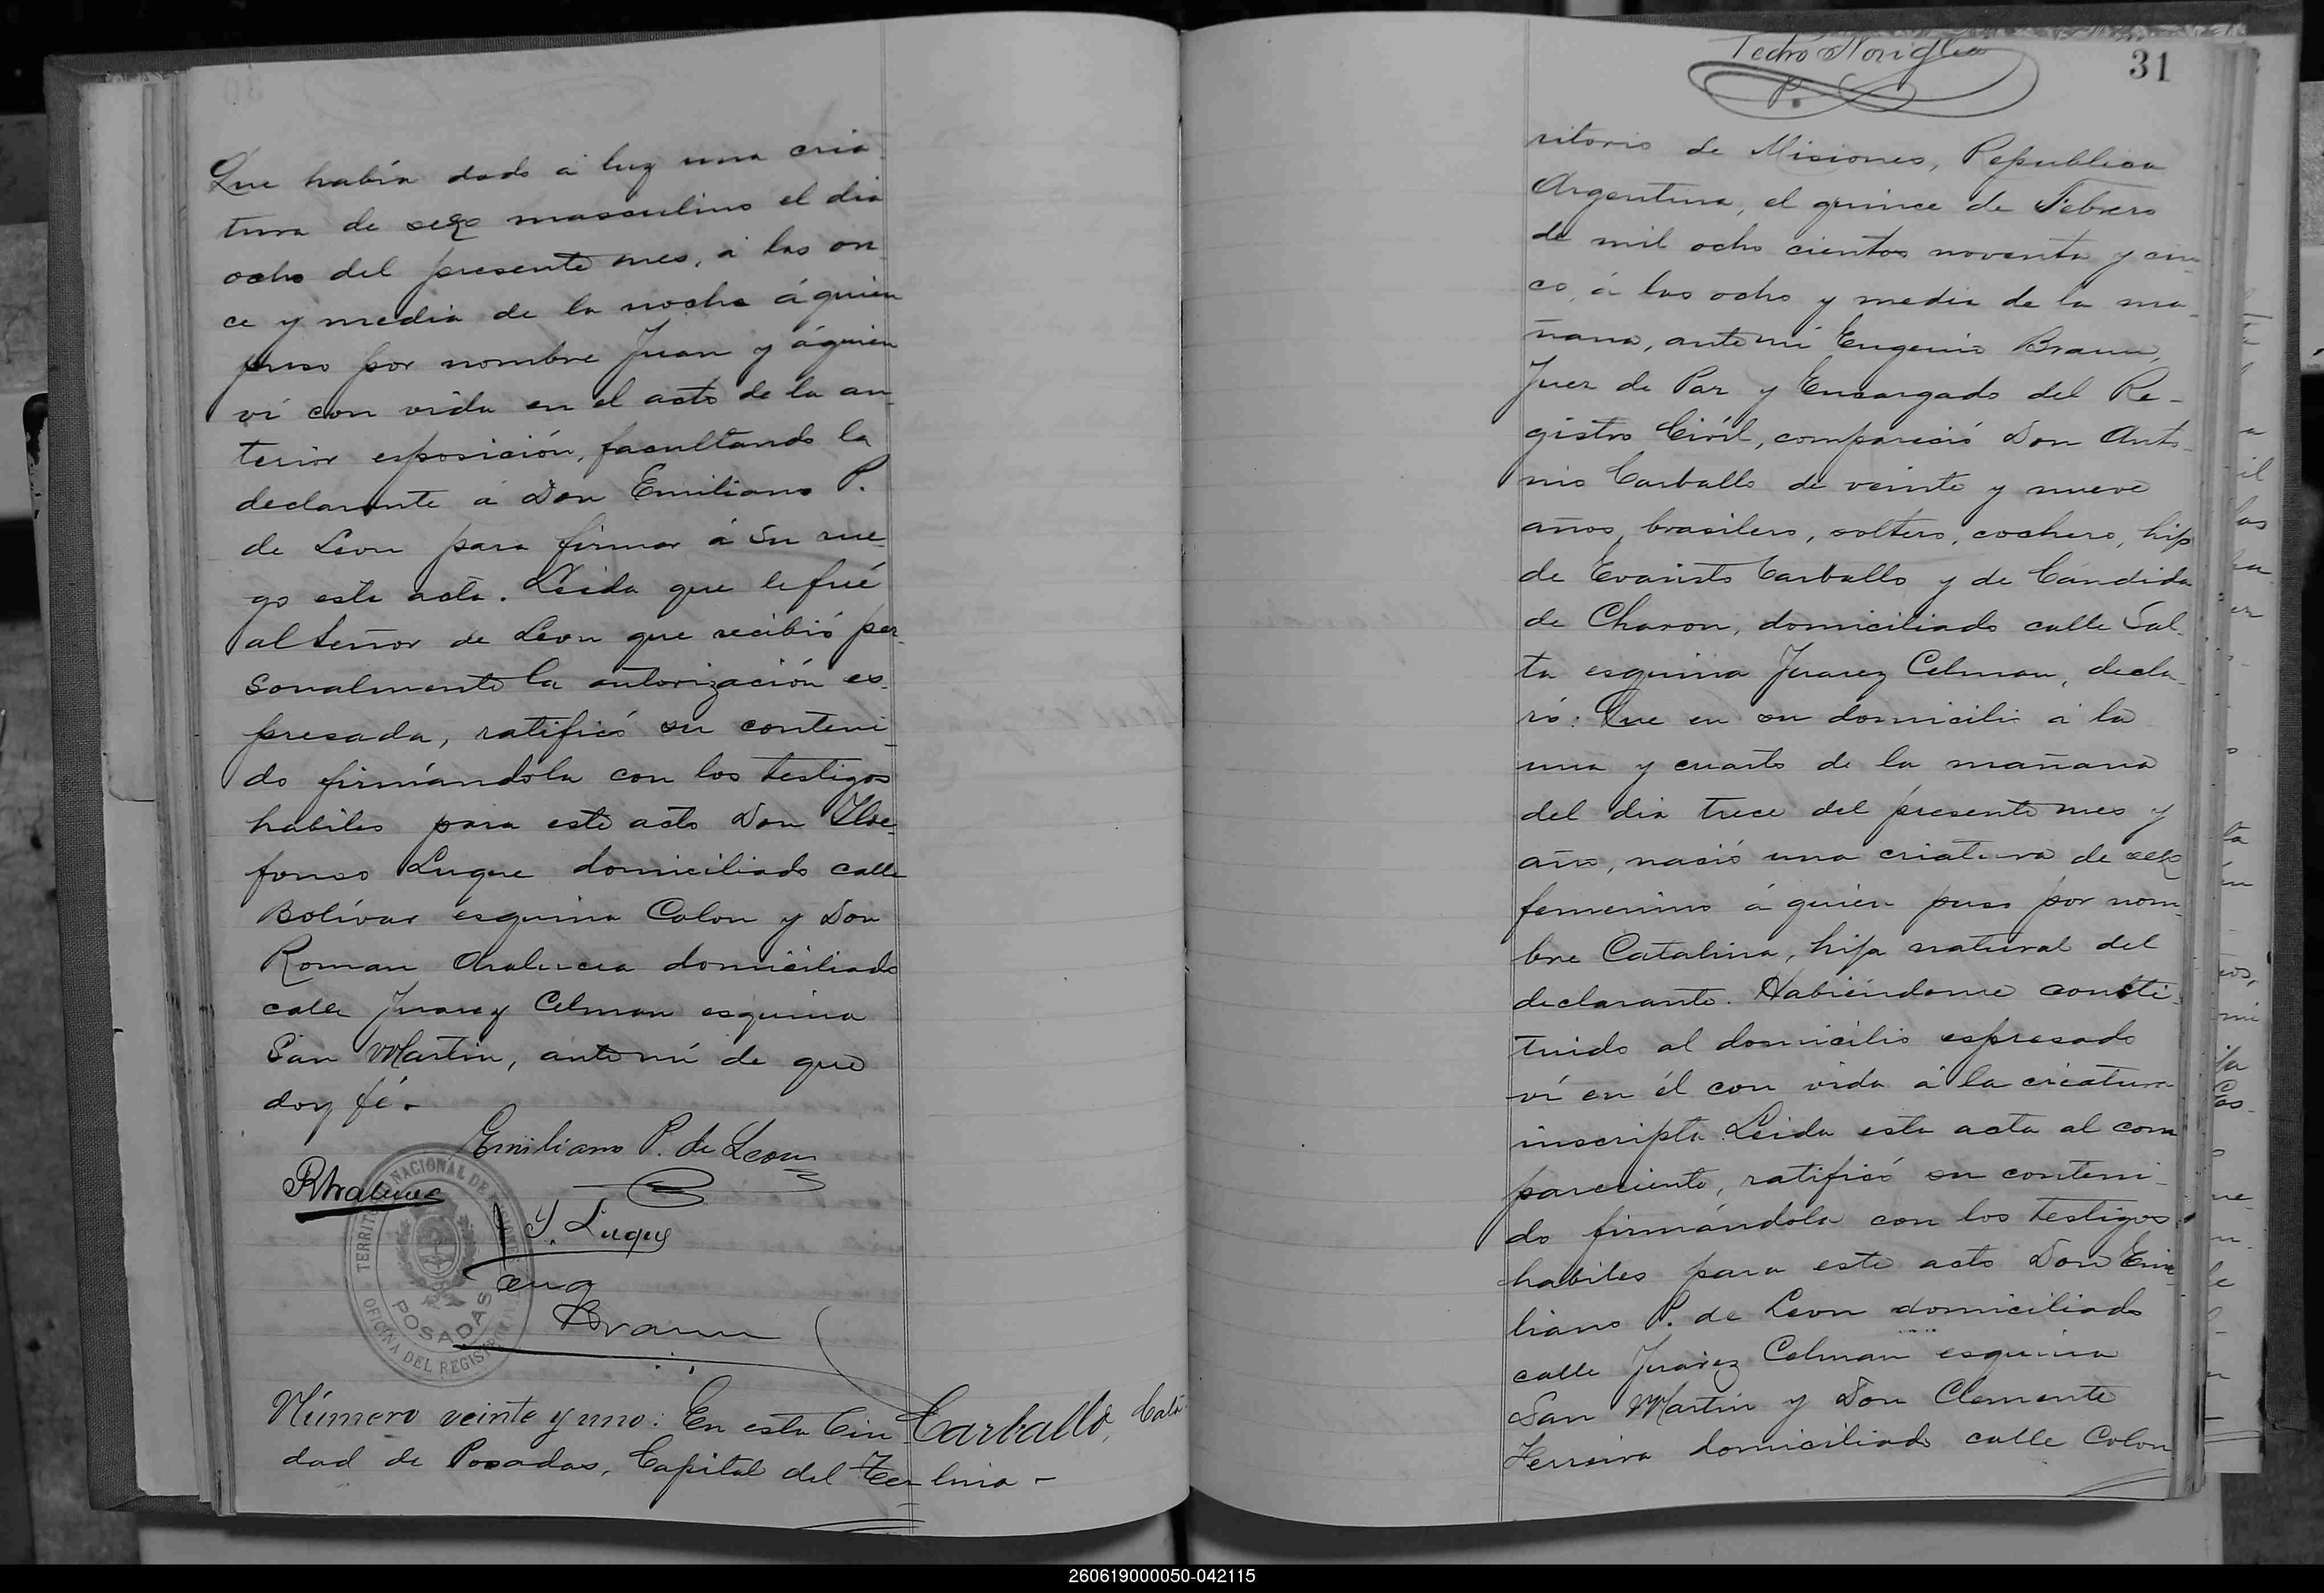 Que había dado á luz una cria
tura de sexo masculino el dia
ocho del presente mes, á las on
ce y media de la noche á quien
puso por nombre Juan y á quien
ví con vida en el acto de la an
terior esposición, facultando la
declarante á Don Emiliano P.
de Leon para firmar á su rue
go este acta. Leida que le fué
al Señor de Leon que recibió per-
sonalmente la autorización es-
presada, ratificó su conteni-
do firmándola con los testigos
habiles para este acto Don Ilde-
fonso Luque domiciliado calle
Bolívar esquina Colon y Don
Roman domiciliado
calle Juarez Celman esquina
San Martin, ante mí de que
doy fé.
Emiliano P. de Leon
Y. Luque
Eug
Braun
TERRITORIO NACIONAL DE MISIONES
OFICINA DEL REGISTRO CIVIL
POSADAS
Número veinte y uno: En esta Ciu
dad de Posadas, Capital del Ter-
Carballo, Cata-
lina -
Pedro Noriglia
P.
31
ritorio de Misiones, Republica
Argentina, el quince de Febrero
de mil ocho cientos noventa y cin-
co, á las ocho y media de la ma-
ñana, ante mí Eugenio Braun,
Juez de Paz y Encargado del Re-
gistro Civíl, compareció Don Anto-
nio Carballo de veinte y nueve
años, brasilero, soltero, cochero, hijo
de Evaristo Carballo y de Cándida
de Charon, domiciliado calle Sal-
ta esquina Juarez Celman, decla-
ró: Que en su domicilio á la
una y cuarto de la mañana
del dia trece del presente mes y
año, nació una criatura de sexo
femenino á quien puso por nom-
bre Catalina, hija natural del
declarante. Habiéndome consti-
tuido al domicilio espresado
ví en él con vida á la criatura
inscripta. Leida esta acta al com
pareciente, ratificó su conteni-
do firmándola con los testigos
habiles para este acto Don Emi-
liano P. de Leon domiciliado
calle Juarez Celman esquina
San Martin y Don Clemente
Ferreira domiciliado calle Colon
260619000050-042115